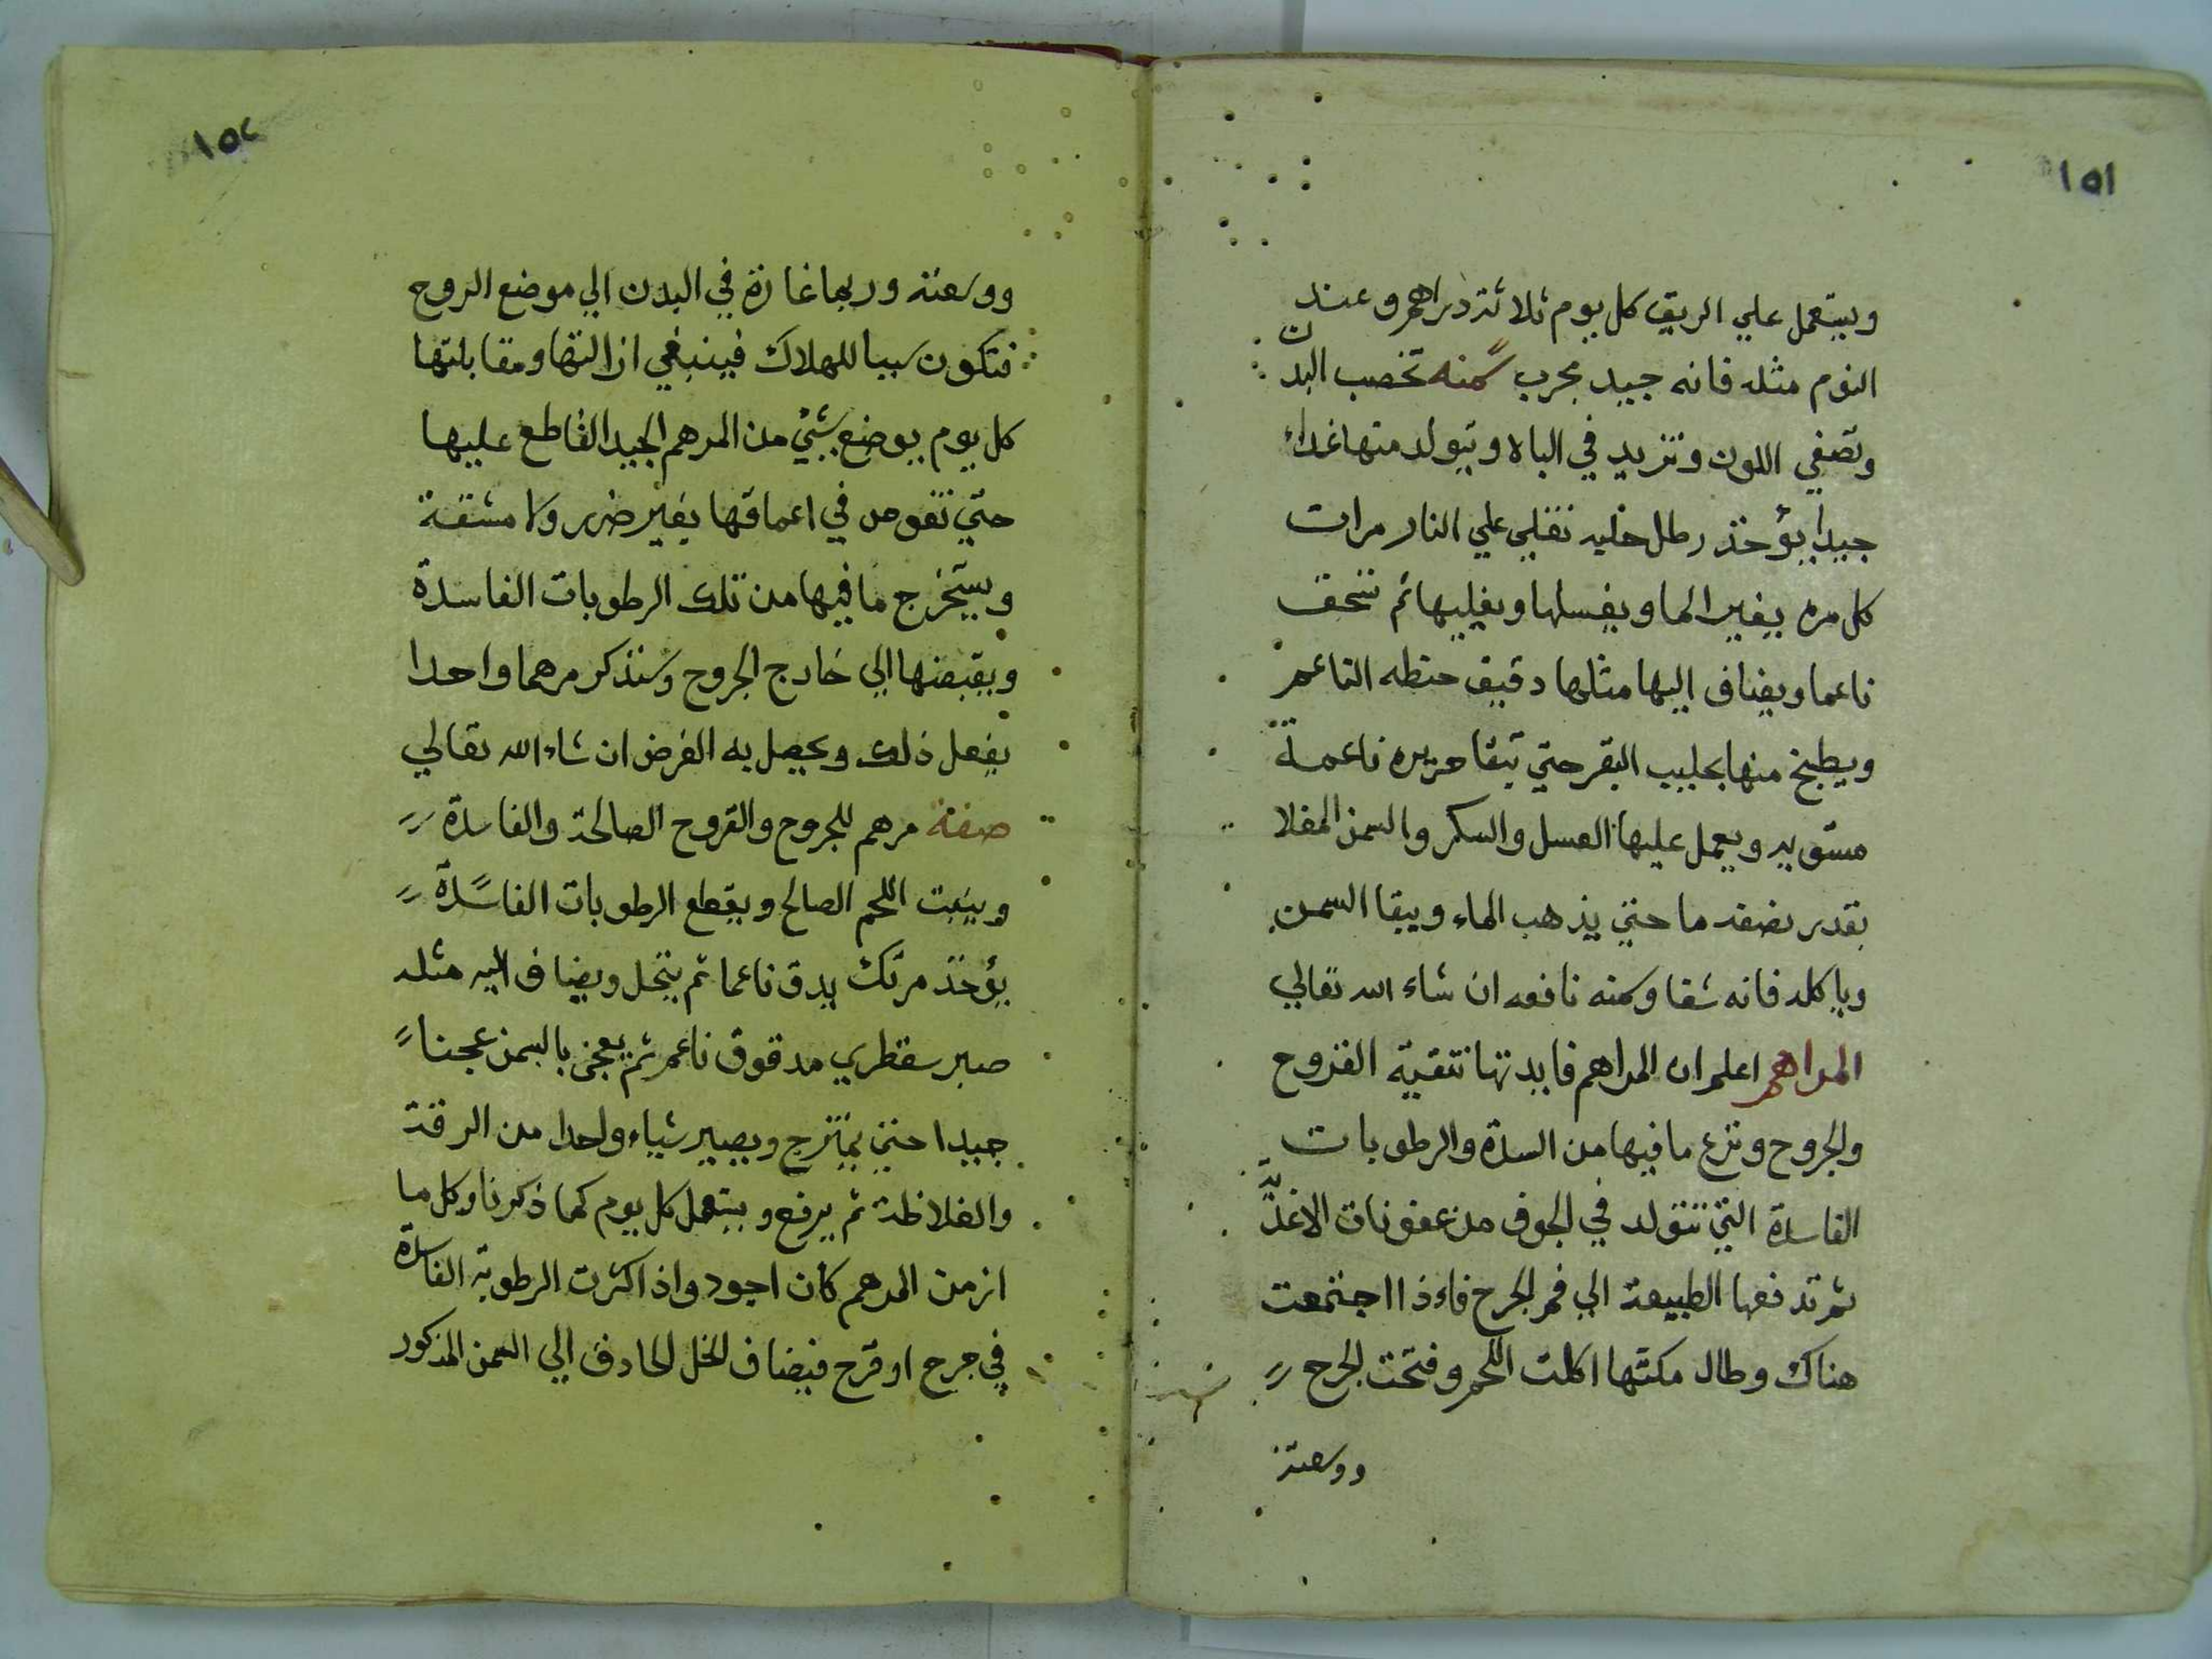 ١٥١
ويستعمل علي الريق كل يوم ثلاثة دراهم وعند
النوم مثله فانه جيد مجرب سمنه تخصب البدن
وتصفي اللون وتزيد في الباه ويتولد منها غداء
جيدا يؤخذ رطل حلبه تغلي علي النار مرات
كل مره يغير الما ويغسلها ويغليها ثم تسحق
ناعما ويضاف اليها مثلها دقيق حنطه الناعم
ويطبخ منها بحليب البقر حتي تبقا حريره ناعمة
مستويه ويعمل عليها العسل والسكر والسمن المغلا
بقدر نصفه ما حتي يذهب الماء ويبقا السمن
وياكله فانه شفا وسمنه نافعه ان شاء الله تعالي
المراهم اعلم ان المراهم فايدتها تنقية القروح
والجروح ونزع ما فيها من السدة والرطوبات
الفاسدة التي تتولد في الجوف من عفونات الاغذية
ثم تدفعها الطبيعة الي فم الجرح فاءذا اجتمعت
هناك وطال مكثها اكلت اللحم وفتحت الجرح
ووسعته
١٥٢
ووسعته وربما غارة في البدن الي موضع الروح
فتكون سببا للهلاك فينبغي ازالتها ومقابلتها
كل يوم بوضع شيئ من المرهم الجيد القاطع عليها
حتي تغوص في اعماقها بغير ضرر ولا مشقة
ويستخرج ما فيها من تلك الرطوبات الفاسدة
ويقبضها الي خارج الجروح وسنذكر مرهما واحدا
يفعل ذلك ويحصل به الغرض ان شاء الله تعالي
صفة مرهم للجروح والقروح الصالحة والفاسدة
وينبت اللحم الصالح ويقطع الرطوبات الفاسدة
يؤخذ مرتك يدق ناعما ثم ينخل ويضاف اليه مثله
صبر سقطري مدقوق ناعم ثم يعجن بالسمن عجنا
جيدا حتي يمتزج ويصير شياء واحدا من الرقة
والغلاظة ثم يرفع ويستعمل كل يوم كما ذكرنا وكل ما
ازمن المرهم كان اجود واذا كثرت الرطوبة الفاسدة
في جرح او قرح فيضاف الخل الحادق الي السمن المذكور